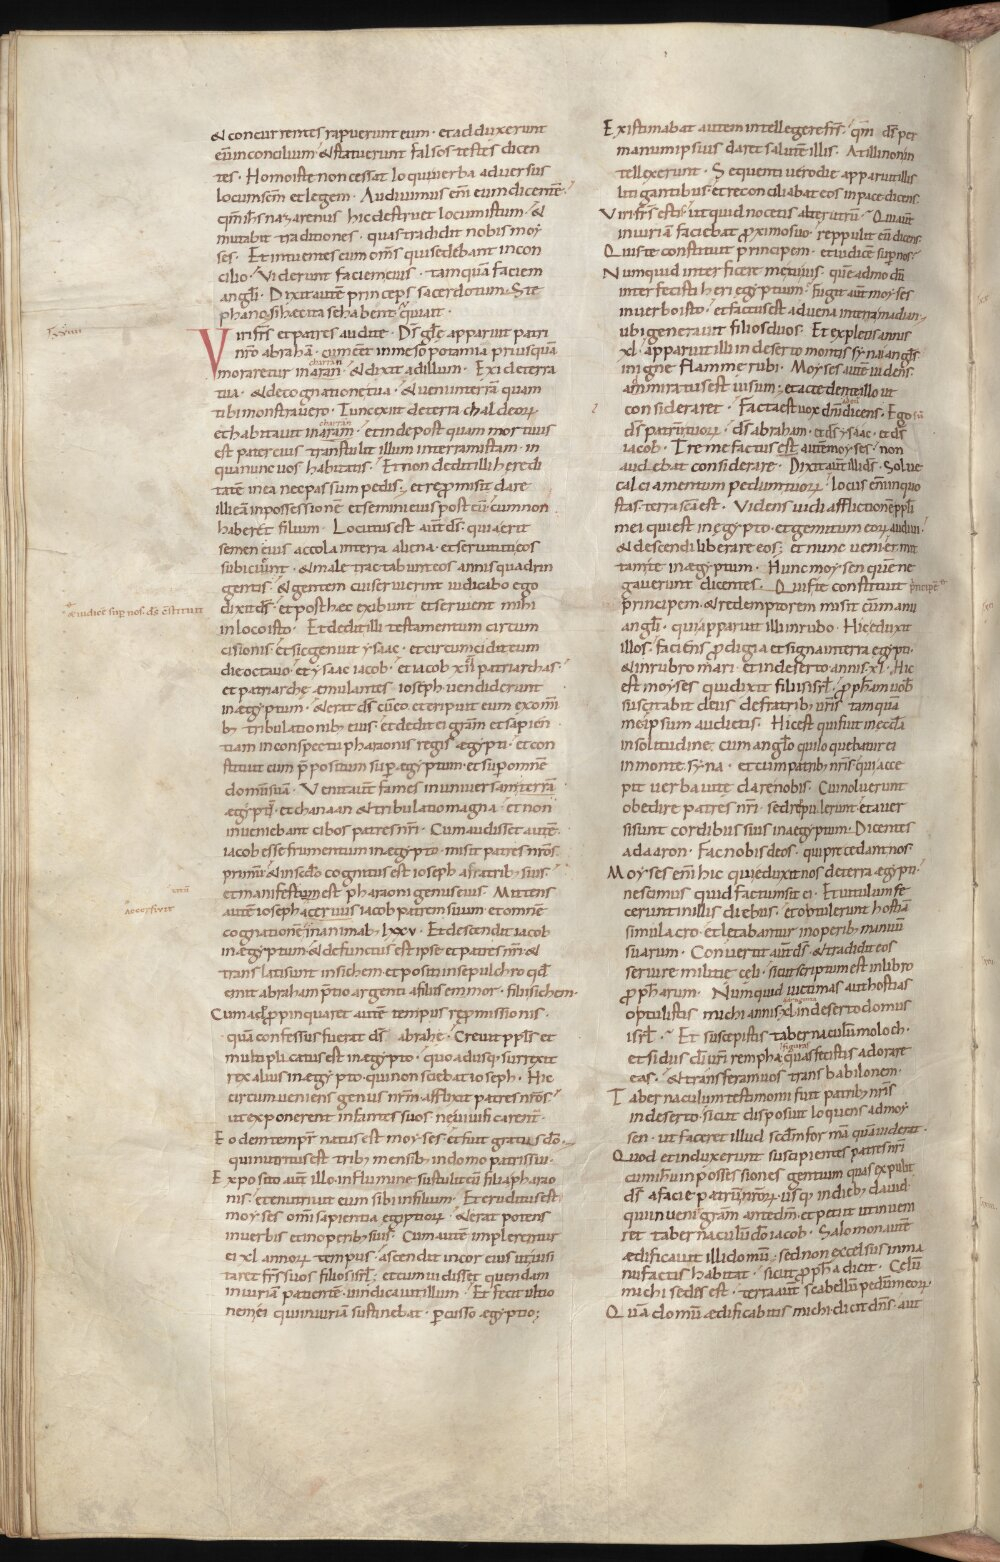 & concurrentes rapuerunt eum · et adduxerunt
eū in concilium · & statuerunt falsos testes dicen
tes · Homo iste non cessat loqui uerba aduersus
locum sc̄m et legem · Audiuimus em̄ eum dicentē ·
qm̄ ih̄s nazarenus hic destruet locum istum · &
mutabit traditiones · quas tradidit nobis moy
ses · Et intuentes eum om̄s qui sedebant in con
cilio · Viderunt faciem eius · tamquā faciem
angl̄i · Dixit autē princeps sacerdotum · Ste
phano si hęc ita se habent · qui ait ·
Viri fr̄s et patres audite · Ds̄ glę apparuit patri
nr̄o abrahā · cum eēt in mesopotamia priusquā
charran
moraretur in aran · & dixit ad illum · Exi de terra
tua · & de cognatione tua · & ueni in terrā quam
tibi monstrauero · Tunc exiit de terra chaldeoꝝ
charran
et habitauit in aran · et inde post quam mortuus
est pater eius transtulit illum in terram istam · in
qua nunc uos habitatis · Et non dedit illi heredi
tatē in ea nec passum pedis · et repromisit dare
illi eā in possessionē et semini eius post eū cum non
haberet filium · Locutus est aut̄ ds̄ · quia erit
semen eius accola in terra aliena · et seruituti eos
subicient · & male tractabunt eos annis quadrin
gentis · & gentem cui seruierint iudicabo ego
dixit ds̄ · et post hęc exibunt et seruient mihi
in loco isto · Et dedit illi testamentum circum
cisionis · et sic genuit ysaac · et circumcidit eum
die octauo · et ysaac iacob · et iacob xii patriarchas ·
et patriarchę emulantes ioseph uendiderunt
in ægyptum · & erat ds̄ cū eo · et eripuit eum ex om̄i
bꝫ tribulationibꝫ eius · et dedit ei grām et sapien
tiam in conspectu pharaonis regis ægypti · et con
stituit eum p̄positum sup ægyptum · et sup omnē
domum suā · Venit aut̄ fames in uniuersam terrā
ægypti · et chanaan & tribulatio magna · et non
inueniebant cibos patres nr̄i · Cum audisset autē
iacob esse frumentum in ægypto · misit patres nr̄os
primū · & in sedō cognitus est ioseph a fratribꝫ suis ·
et manifestum est pharaoni genus eius · Mittens
autē ioseph acersiuit iacob patrem suum et omnē
cognationē in animabꝫ lxxv · Et descendit iacob
in ægyptum · & defunctus est ipse et patres nr̄i · &
translati sunt in sichem et positi in sepulchro qđ
emit abraham p̄tio argenti a filiis emmor · filii sichem ·
Cum adpropinquaret autē tempus repromissionis ·
quā confessus fuerat ds̄ abrahę · Creuit ppl̄s et
multiplicatus est in ægypto · quo adusq surrexit
rex alius in ægypto · qui non sciebat ioseph · Hic
circumueniens genus nr̄m · afflixit patres nr̄os
ut exponerent infantes suos ne uiuificarent ·
Eodem tempr̄ natus est moyses · et fuit gratus dō ·
qui nutritus est tribꝫ mensibꝫ in domo patris sui ·
Exposito aut̄ illo in flumine sustulit eū filia pharao
nis · et enutriuit eum sibi in filium · Et eruditus est
moyses om̄i sapientia egyptioꝝ · & erat potens
in uerbis et in operibꝫ suis · Cum autē impleretur
ei xl annorum tempus · ascendit in cor eius ut uisi
taret fr̄s suos filios isrl̄ · et cum uidisset quendam
iniuriā patientē · uindicauit illum · Et fecit ultio
nem ei qui iniuriam sustinebat · percusso ægyptio ;
Existimabat autem intellegere fr̄s · qm̄ ds̄ per
manum ipsius daret salutē illis · At illi non in
tellexerunt · Sequenti uero die apparuit illis
litigantibus · et reconciliabat eos in pace dicens
Viri fr̄s estis · ut quid nocetis alterutrū · Qui aut̄
iniuriam faciebat proximo suo reppulit eū dicens
Quis te constituit principem · et iudicē sup nos ·
Numquid interficere me tu uis · quē ad modū
interfecisti heri egyptium · fugit aut̄ moyses
in uerbo isto · et factus est aduena in terra madian ·
ubi generauit filios duos · Et expletis annis
xl · apparuit illi in deserto montis synai angl̄s
in igne flamme rubi · Moyses autē uidens
ammiratus est uisum · et accedente illo ut
consideraret · Facta est uox dn̄i dicens · Ego
ds̄ patrum tuoꝝ · ds̄ abraham · et ds̄ ysaac · et ds̄
iacob · Tremefactus est autem moyses · non
audebat considerare · Dixit aut̄ illi ds̄ · Solue
calciamentum pedum tuoꝝ · locus em̄ in quo
stas · terra sc̄a est · Videns uidi afflictionē ppl̄i
mei qui est in egypto · et gemitum eoꝝ audiui
& descendi liberare eos · et nunc ueni et mit
tam te in ægyptum · Hunc moysen quē ne
gauerunt dicentes · Quis te constituit principē
principem & redemptorem misit cum manu
angl̄i · qui apparuit illi in rubo · Hic eduxit
illos · faciens prodigia et signa in terra egypti ·
& in rubro mari · et in deserto annis xl · Hic
est moyses qui dixit filiis isrl̄ · proph̄am uob̄
suscitabit deus de fratribꝫ ur̄is tamquā
me ipsum audietis · Hic est qui fuit in eccl̄a
in solitudine · cum anglo qui loquebatur ei
in monte syna · et cum patribꝫ nr̄is · qui acce
pit uerba uitę dare nobis · Cui noluerunt
obedire patres nr̄i · sed repulerunt · et auer
si sunt cordibus suis in aegyptum · Dicentes
ad aaron · Fac nobis deos · qui precedant nos ·
Moyses em̄ hic qui eduxit nos de terra ægypti ·
nescimus quid factum sit ei · Et uitulum fe
cerunt in illis diebus · et obtulerunt hostiā
simulacro · et letabantur in operibꝫ manuū
suarum · Conuertit aut̄ ds̄ · & tradidit eos
seruire militię cęli · sicut scriptum est in libro
prophetarum · Numquid uictimas aut hostias
optulistis michi annis xl in deserto domus
isrl̄ · Et suscepistis tabernaculū moloch ·
et sidus dei ur̄i rempha
figuras
quas fecistis adorare
eas · & transferam uos trans babilonem ·
Tabernaculum testimonii fuit patribꝫ nr̄is
in deserto · sicut disposuit loquens ad moy
sen · ut faceret illud scdm formā quā uiderat ·
Quod et induxerunt suscipientes patres nr̄i
cum ih̄u in possessiones gentium quas expulit
ds̄ a facie patrum nr̄oꝝ · usq in diebꝫ dauid
qui inueni grām ante dm̄ · et petiit ut inuem
ret tabernaculū dō iacob · Salomon autē
ædificauit illi domū · sed non excelsus in ma
nufactis habitat · sicut propha dicit · Celū
michi sedes est · terra aut̄ scabellū pedū meoꝝ ·
Quā domū ædificabitis michi dicit dn̄s · aut
& iudicē sup nos · ds̄ c̄stituit
Accersiuit